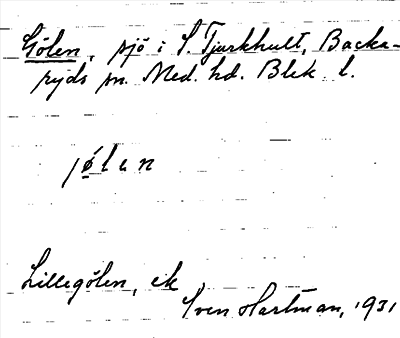 Gölen, sjö i S. Tjurkhult, Backa-
ryds sn. Med. hd. Blek. l.
jø̀len
Lillegölen, ek
Sven Hartman, 1931